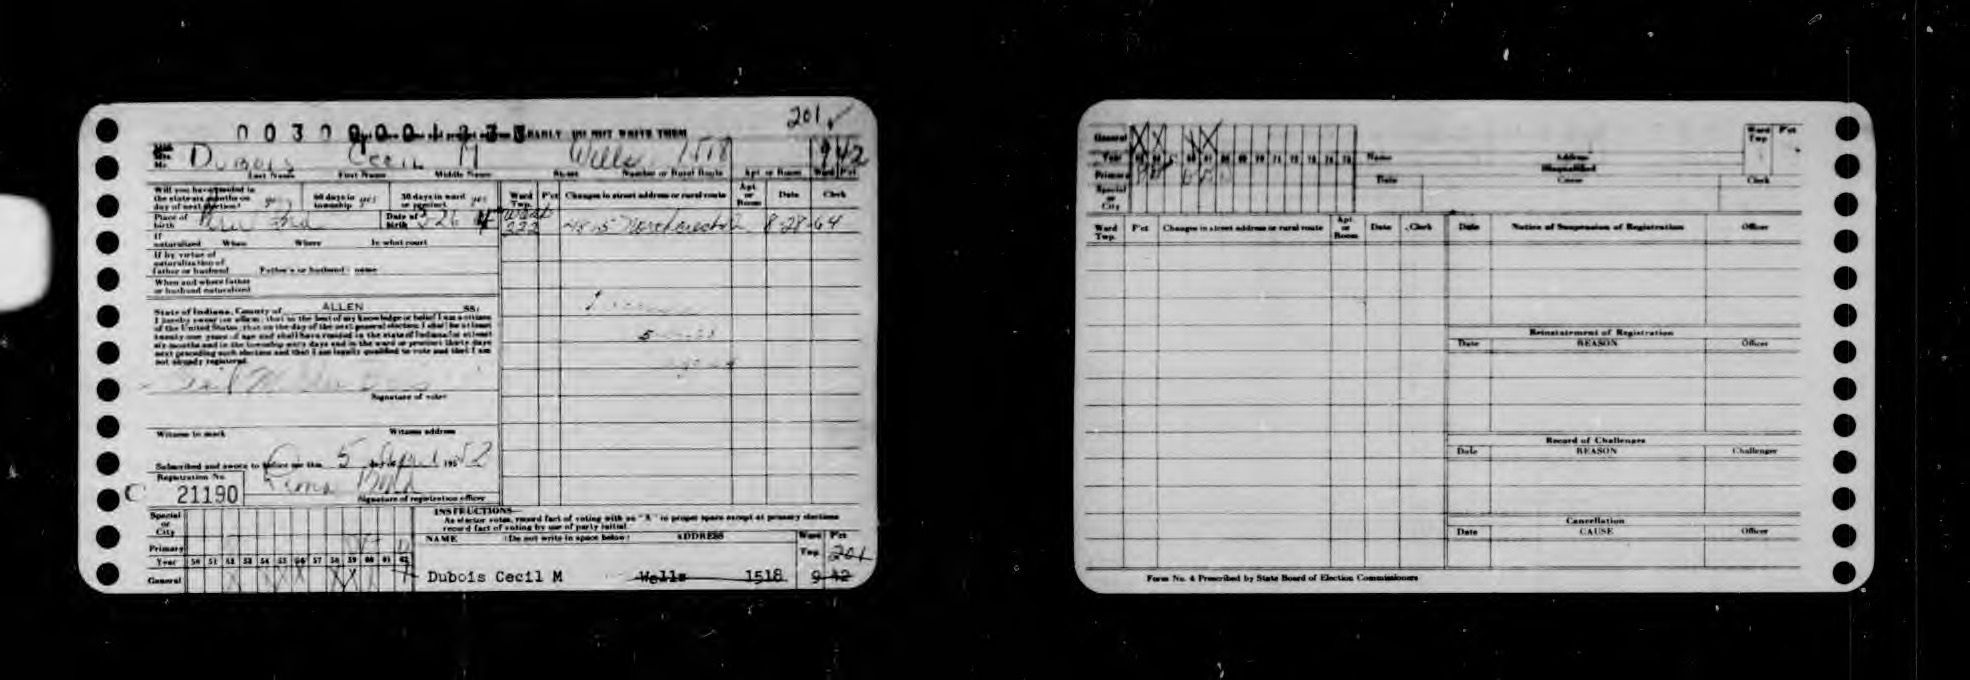 201 ✓
DO NOT WRITE THEM
Dubois Cecil M Wells 1518 9 42
Last Name First Name Middle Name Street Number or Rural Route Apt or Room Ward P'ct
Will you have resided in
the state six months on
day of next election? yes
60 days in
township yes
30 days in ward
or precinct yes
Ward
Twp. P'ct Changes in street address or rural route Apt
or
Room Date Clerk
Place of
birth
Date of
birth
222 8-28-64
If
naturalized When Where In what court
If by virtue of
naturalization of
father or husband Father's or husband name
When and where father
or husband naturalized
State of Indiana, County of ALLEN SS:
I hereby swear (or affirm) that to the best of my knowledge or belief I am a citizen
of the United States; that on the day of the next general election I shall be at least
twenty-one years of age and shall have resided in the state of Indiana for at least
six months and in the township sixty days and in the ward or precinct thirty days
next preceding such election and that I am legally qualified to vote and that I am
not already registered.
Signature of voter
Witness to mark Witness address
Subscribed and sworn to before me this 5 day of April 1952
Registration No.
C 21190
Signature of registration officer
INSTRUCTIONS
As elector votes, record fact of voting with an "X" in proper space except at primary elections
record fact of voting by use of party initial.
Special
or
City
Primary
Year 50 51 52 53 54 55 56 57 58 59 60 61 62
General
NAME (Do not write in space below) ADDRESS Ward P'ct
Twp. 201
Dubois Cecil M Wells 1518 9 42
General
Year
Primary
Special
or
City
Name Address
Disqualified
Date Cause Clerk
Ward
Twp. P'ct
Ward
Twp. P'ct Changes in street address or rural route Apt.
or
Room Date Clerk
Date Notice of Suspension of Registration Officer
Reinstatement of Registration
Date REASON Officer
Record of Challenges
Date REASON Challenger
Cancellation
Date CAUSE Officer
Form No. 4 Prescribed by State Board of Election Commissioners